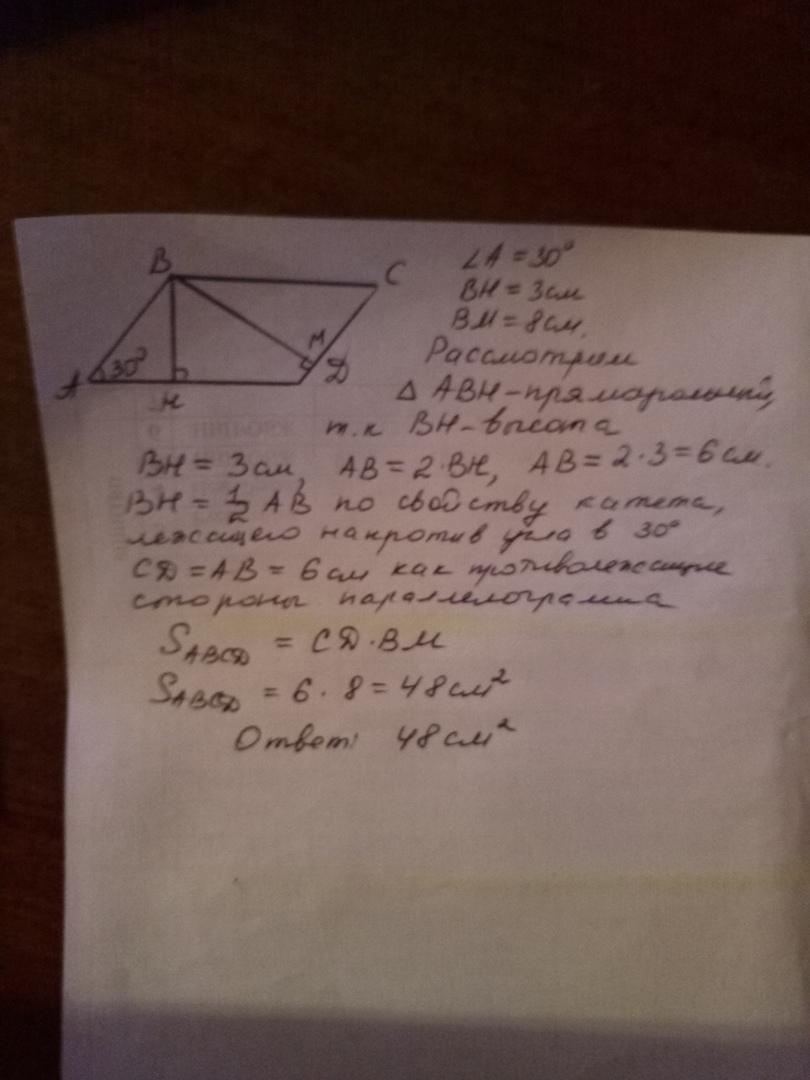 B
C
M
A
30°
H
D
∠A = 30°
BH = 3 см
BM = 8 см.
Рассмотрим
△ ABH - прямоугольный,
т.к BH - высота
BH = 3 см, AB = 2·BH, AB = 2·3 = 6 см.
BH = 1/2 AB по свойству катета,
лежащего напротив угла в 30°
CD = AB = 6 см как противолежащие
стороны параллелограмма
S ABCD = CD·BM
S ABCD = 6·8 = 48 см²
Ответ: 48 см²